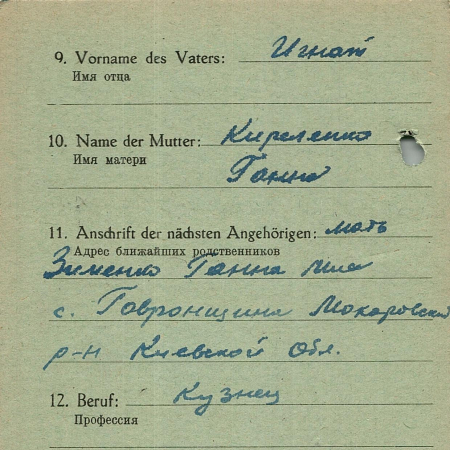 9. Vorname des Vaters: Игнат
Имя отца
10. Name der Mutter: Киреленко
Имя матери
Ганна
11. Anschrift der nächsten Angehörigen: мать
Адрес ближайших родственников
Зименко Ганна
с. Гавронщина Макаровский
р-н Киевской обл.
12. Beruf: Кузнец
Профессия